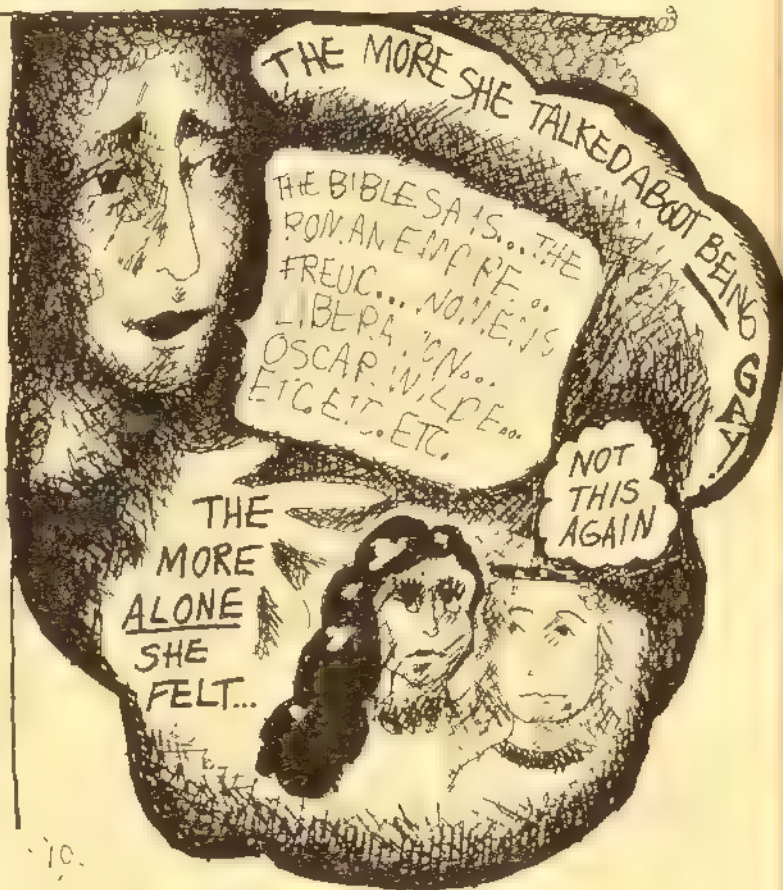 THE MORE SHE TALKED ABOUT BEING GAY!
THE BIBLE SAYS... THE
ROMAN EMPIRE...
FREUD... WOMEN'S
LIBERATION...
OSCAR WILDE...
ETC. ETC. ETC.
NOT
THIS
AGAIN
THE
MORE
ALONE
SHE
FELT...
·10·